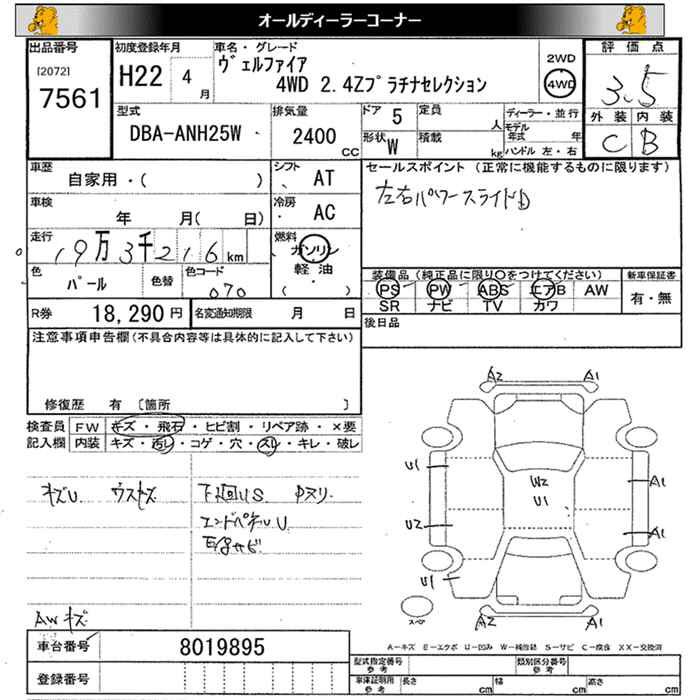 オールディーラーコーナー
出品番号 [2072] 7561
初度登録年月 H22 4月
車名・グレード ヴェルファイア 4WD 2.4Zプラチナセレクション
2WD 4WD
評価点 3.5
外装 内装 C B
型式 DBA-ANH25W
排気量 2400 CC
ドア 5
定員 人
形状 W
積載 kg
ディーラー・並行
モデル年式 年
ハンドル 左・右
車歴 自家用・( )
シフト AT
車検 年 月( 日)
冷房 AC
セールスポイント (正常に機能するものに限ります)
左右パワースライドD
走行 19万3千216km
燃料 ガソリン 軽油 ( )
色 パール
色替
色コード 070
装備品 (純正品に限り○をつけてください)
PS PW ABS エアB AW
SR ナビ TV カワ
新車保証書 有・無
R券 18,290円
名変通知期限 月 日
後日品
注意事項申告欄 (不具合内容等は具体的に記入して下さい)
修復歴 有 〔箇所 〕
検査員記入欄
FW キズ・飛石・ヒビ割・リペア跡・×要
内装 キズ・汚レ・コゲ・穴・スレ・キレ・破レ
キズU ウスキズ
下廻US
エンドパネルU
AWキズ
A2 A1
U1 A1
W2
U1
U2 A1
U1
A2 A1
スペア
A-キズ E-エクボ U-凹み W-補修跡 S-サビ C-腐食 XX-交換済
車台番号 8019895
登録番号
型式指定番号 参考
類別区分番号 参考
車庫証明用 参考 長さ cm 幅 cm 高さ cm